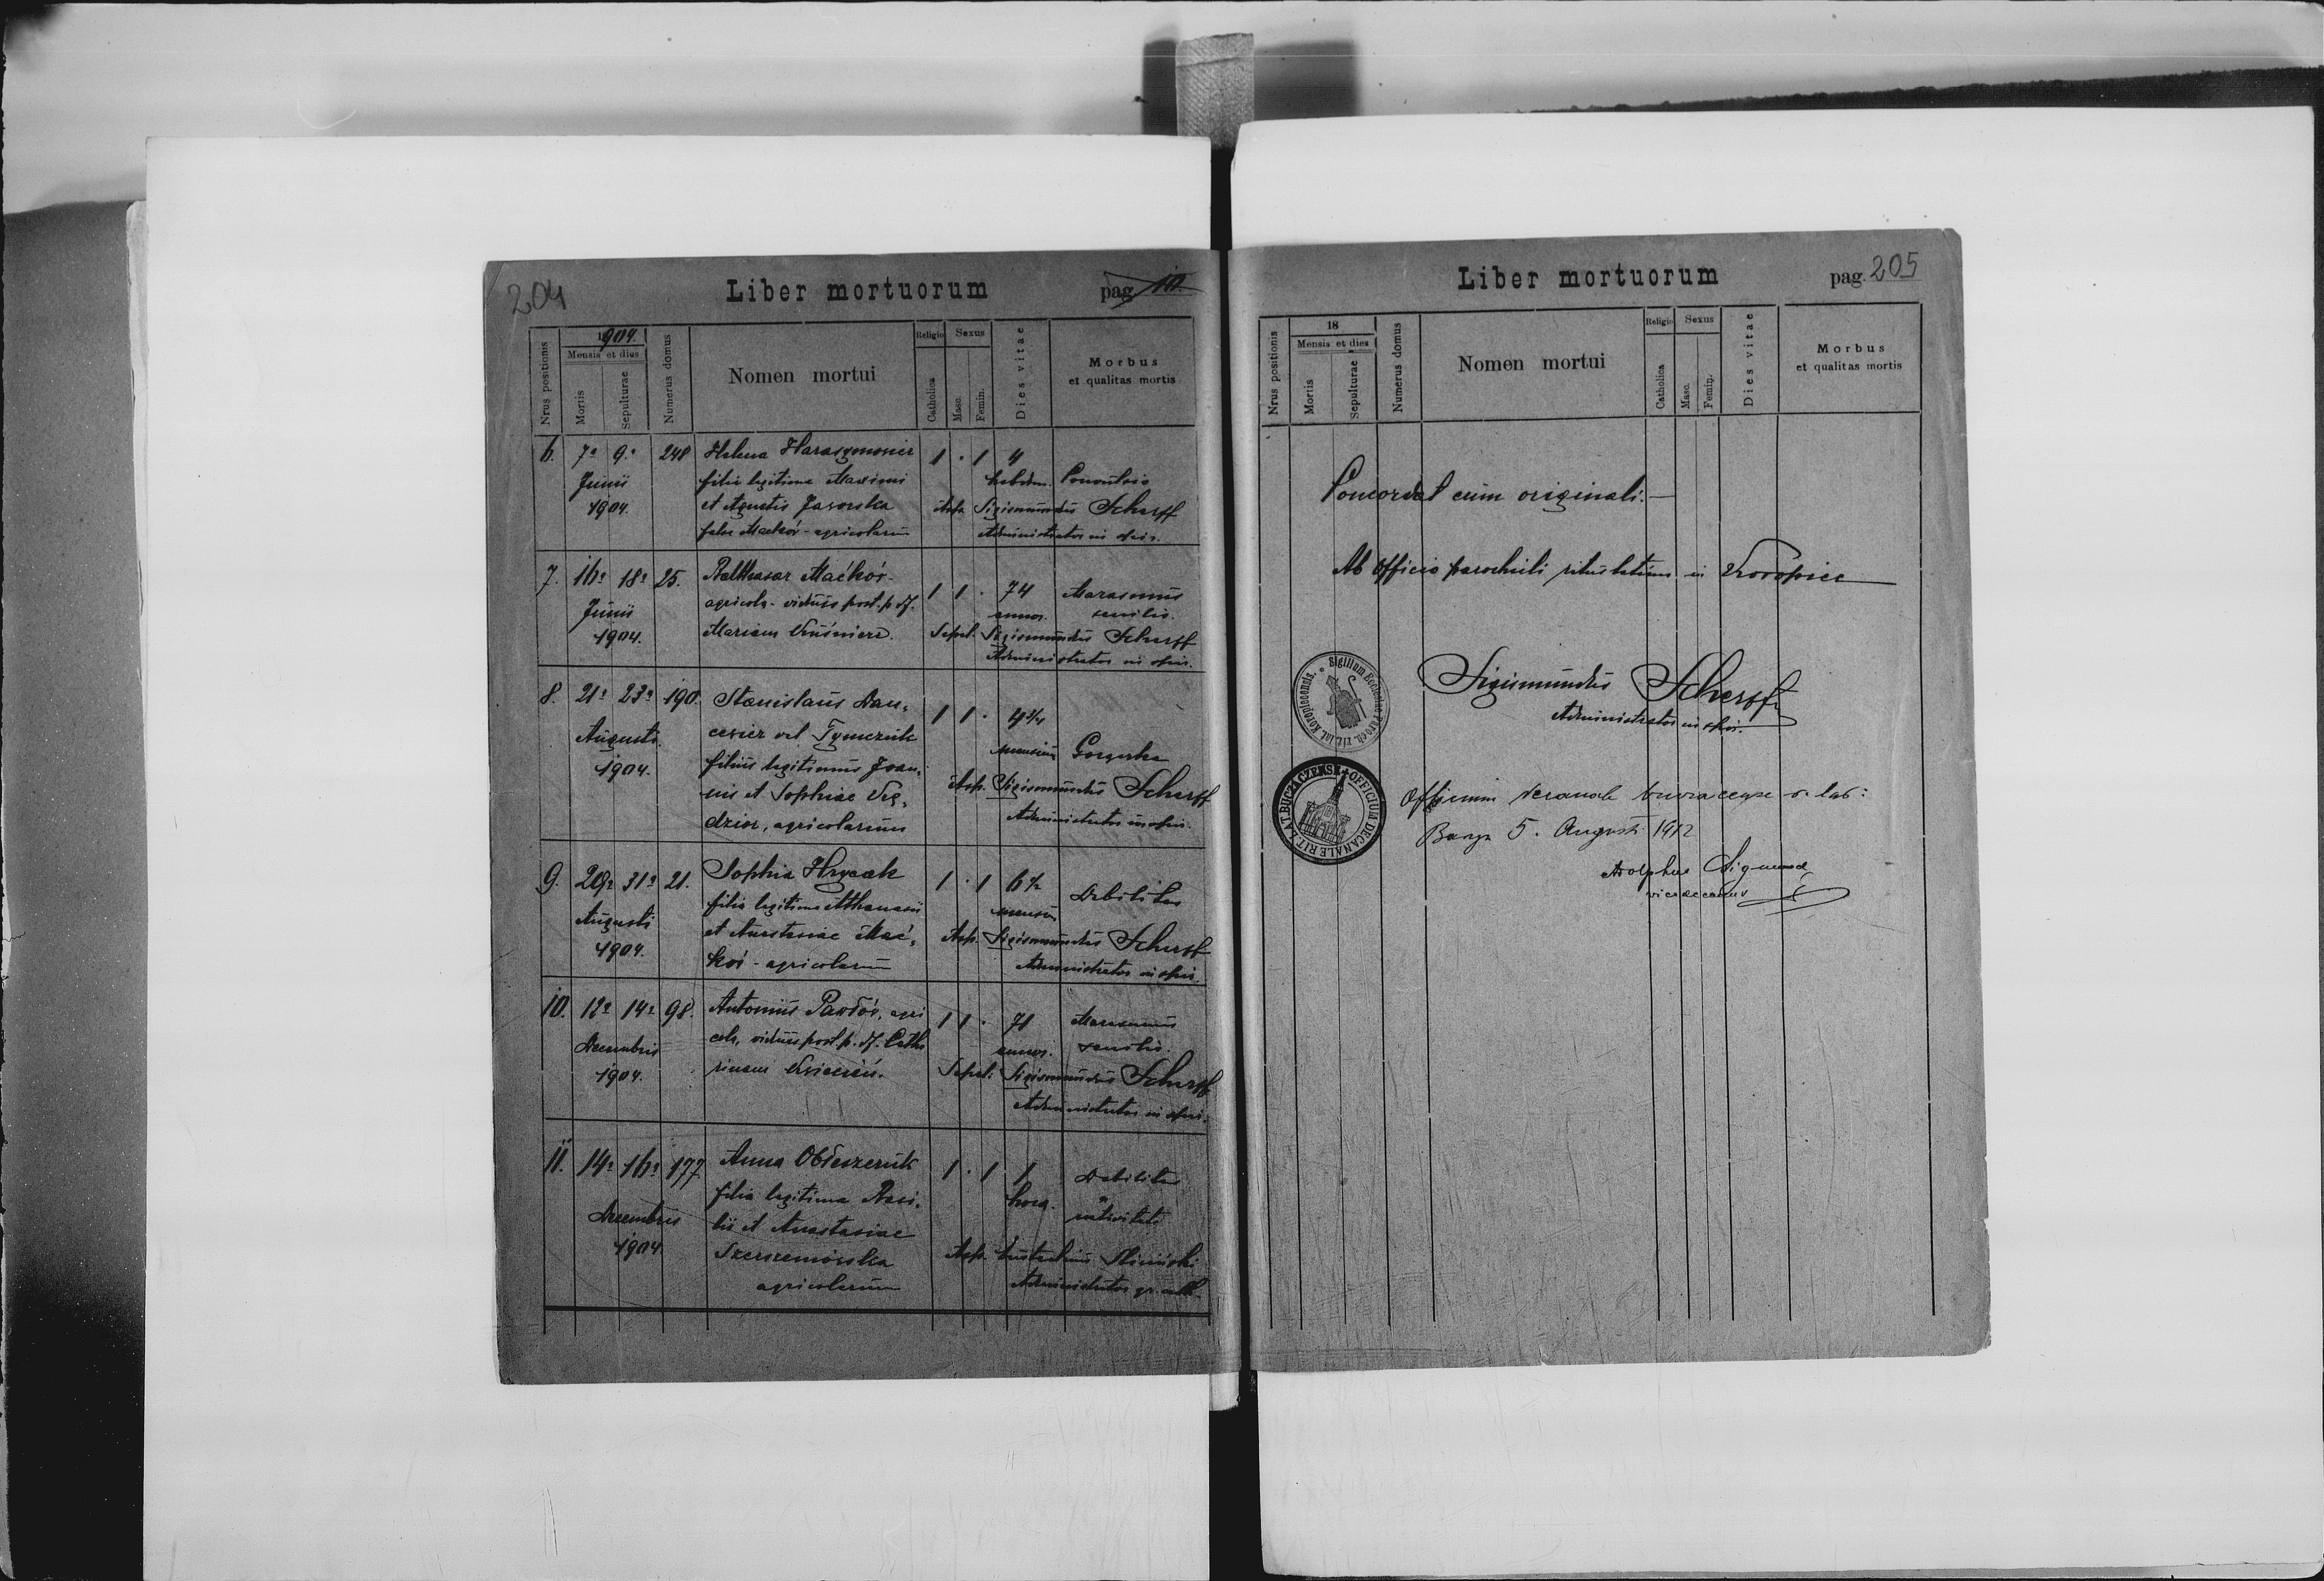 204
Liber mortuorum
pag. 10.
Nrus positionis
1904.
Mensis et dies
Mortis
Sepulturae
Numerus domus
Nomen mortui
Religio
Catholica
Sexus
Masc.
Femin.
Dies vitae
Morbus
et qualitas mortis
6. 7a 9a 248 Helena Harasymowicz 1 · 1 4
Junii filia legitima Maximi hebdom.
1904. et Agnetis Jaworska Sigismundus Scherff
Maćków - agricolarum Administrator in spir.
7. 16a 18a 25. Balthasar Maćków - 1 1 · 74 Marasmus
Junii agricola - viduus post p. df. annor. senilis.
1904. Mariam Kuśnierz. Sepel. Sigismundus Scherff
Administrator in spir.
8. 21a 23a 190. Stanislaus Dan-
cewicz vel Tymczuk 1 1 · 4 3/4
Augusti filius legitimus Joan- mensium
1904. nis et Sophiae Asp. Sigismundus Scherff
dzior, agricolarum Administrator in spir.
9. 29a 31a 21. Sophia Hrycak 1 · 1 6 1/2 Debilitas
Augusti filia legitima Athanasii mensium
1904. et Anastasiae Mać- Asp. Sigismundus Scherff
ków - agricolarum Administrator in spir.
10. 12a 14a 98. Antonius Pawłów, agri 1 1 · 71 Marasmus
Decembris cola, viduus post p. df. Catha annor. senilis.
1904. rinam Kwiecień. Sepel. Sigismundus Scherff
Administrator in spir.
11. 14a 16a 177 Anna Obłeszczuk 1 · 1 1 Debilitas
filia legitima Basi- hora. a
Decembris lii et Anastasiae nativitate
1904 Szerszeniowska Asp. Administrator gr. cath.
agricolarum
Liber mortuorum
pag. 205
Nrus positionis
18
Mensis et dies
Mortis
Sepulturae
Numerus domus
Nomen mortui
Religio
Catholica
Sexus
Masc.
Femin.
Dies vitae
Morbus
et qualitas mortis
Concordat cum originali. —
Ab Officio parochiali ritus latini in Koropiec
Sigillum Ecclesiae Paroch. rit. lat. Koropiecensis.
Sigismundus Scherff
Administrator in spir.
OFFICIUM DECANALE RIT. LAT. BUCZACZENSE
Officium decanale buczaczense r. lat:
5. Augusti 1912
Adolphus Sigmund
vicedecanus